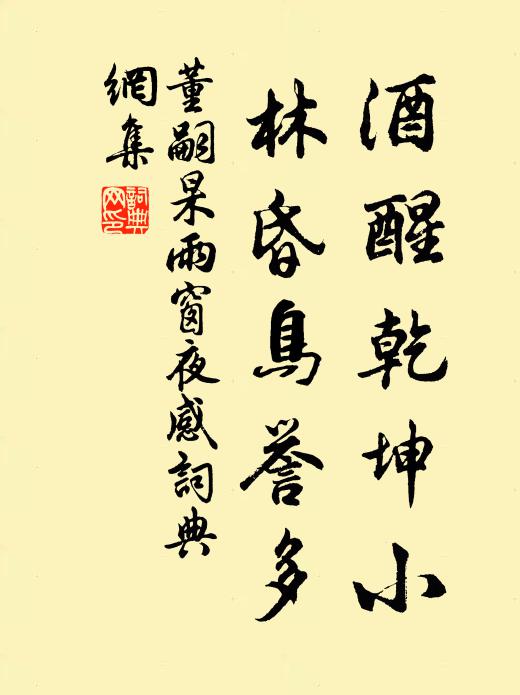 酒醒乾坤小
林昏鳥誉多
董嗣杲雨窗夜感詞典
網集
詞典
网印